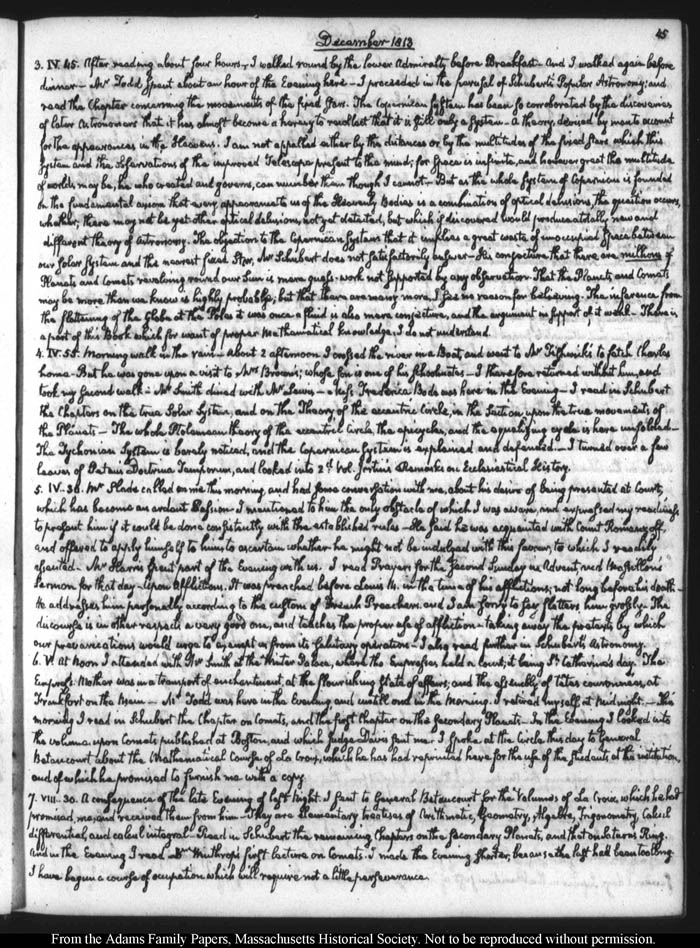 45
December 1813
3. IV. 45. After reading about four hours, I walked round by the lower Admiralty before Breakfast. And I walked again before
dinner — Mr Todd spent about an hour of the Evening here — I proceeded in the perusal of Schubert's Popular Astronomy; and
read the Chapter concerning the movements of the fixed Stars. The Copernican System has been so corroborated by the discoveries
of later Astronomers that it has almost become a heresy to recollect that it is still only a System — a theory, devised by man to account
for the appearances in the Heavens. I am not appalled either by the distances or by the multitudes of the fixed stars which this
System and the observations of the improved Telescope present to the mind; for space is infinite, and however great the multitude
of worlds may be, he who created and governs, can number them though I cannot — But as the whole System of Copernicus is founded
on the fundamental axiom that every appearance to us of the Heavenly Bodies is a combination of optical delusions, the question occurs,
whether, there may not be yet other optical delusions, not yet detected, but which if discovered would produce a totally new and
different theory of Astronomy. The objection to the Copernican System that it implies a great waste of unoccupied space between
our Solar System and the nearest fixed Star, Mr Schubert does not satisfactorily answer — His conjecture that there are millions of
Planets and Comets revolving round our Sun is mere guess-work not supported by any observation — That the Planets and Comets
may be more than we know is highly probable; but that there are many more I see no reason for believing. The inference from
the flattening of the Globe at the Poles it was once a fluid is also mere conjecture, and the argument in support of it weak — There is
a part of this Book which for want of proper Mathematical knowledge, I do not understand.
4. IV. 55. Morning walk in the rain — About 2 afternoon I crossed the river in a Boat, and went to Mr Fishwick's to fetch Charles
home — But he was gone upon a visit to Mrs Brown's; whose son is one of his schoolmates — I therefore returned without him, and
took my second walk — Mr Smith dined with Mr Lewis — Miss Frederica Bode was here in the Evening — I read in Schubert
the Chapters on the true Solar System, and on the Theory of the eccentric Circle, in the Section upon the true movements of
the Planets — The whole Ptolemaean theory of the eccentric Circle, the epicycles, and the equalizing cycle is here unfolded —
The Tychonian System is barely noticed, and the Copernican System is explained and defended — I turned over a few
leaves of Petaus Doctrina Temporum, and looked into 2d. Vol. Jortin's Remarks on Ecclesiastical History.
5. IV. 30. Mr Slade called on me this morning, and had some conversation with me, about his desire of being presented at Court,
which has become an ardent Passion — I mentioned to him the only obstacle of which I was aware, and expressed my readiness
to present him if it could be done consistently with the established rules — He said he was acquainted with Count Romanzoff,
and offered to apply himself to him, to ascertain whether he might not be indulged with this favour; to which I readily
assented — Mr Harris spent part of the Evening with us. I read Prayers for the second Sunday in Advent and Massillon's
Sermon for that day — Upon Afflictions. It was preached before Louis 14. in the time of his afflictions; not long before his death —
He addresses him personally according to the custom of French Preachers, and I am sorry to say flatters him grossly — The
discourse is in other respects a very good one, and teaches the proper use of affliction — taking away the pretexts by which
our prevarications would urge to exempt us from its salutary operation — I also read further in Schubert's Astronomy.
6. V. At Noon I attended with Mr Smith at the Winter Palace, where the Empresses held a Court; it being St Catharine's day. The
Empress Mother was in a transport of enchantment, at the flourishing state of affairs, and the assembly of têtes couronnées, at
Frankfort on the Mein — Mr Todd was here in the Evening and untill one in the Morning. I retired myself at Midnight — This
morning I read in Schubert the Chapter on Comets, and the first Chapter on the secondary Planets — In the Evening I looked into
the volume upon Comets published at Boston, and which Judge Davis sent me. I spoke at the Circle this day to General
Betancourt about the Mathematical Course of La Croix, which he has had reprinted here for the use of the students at his institution,
and of which he promised to furnish me with a copy.
7. VIII. 30. A consequence of the late Evening of last Night. I sent to General Betancourt for the Volumes of La Croix, which he had
promised me, and received them from him — They are elementary treatises of Arithmetic, Geometry, Algebra, Trigonometry, Calcul
differential, and calcul integral — Read in Schubert the remaining Chapters on the secondary Planets, and that on Saturn's Ring,
and in the Evening I read Dr Winthrop's first lecture on Comets. I made the Evening shorter, because the last had been too long.
I have begun a course of occupation which will require not a little perseverance.
From the Adams Family Papers, Massachusetts Historical Society. Not to be reproduced without permission.